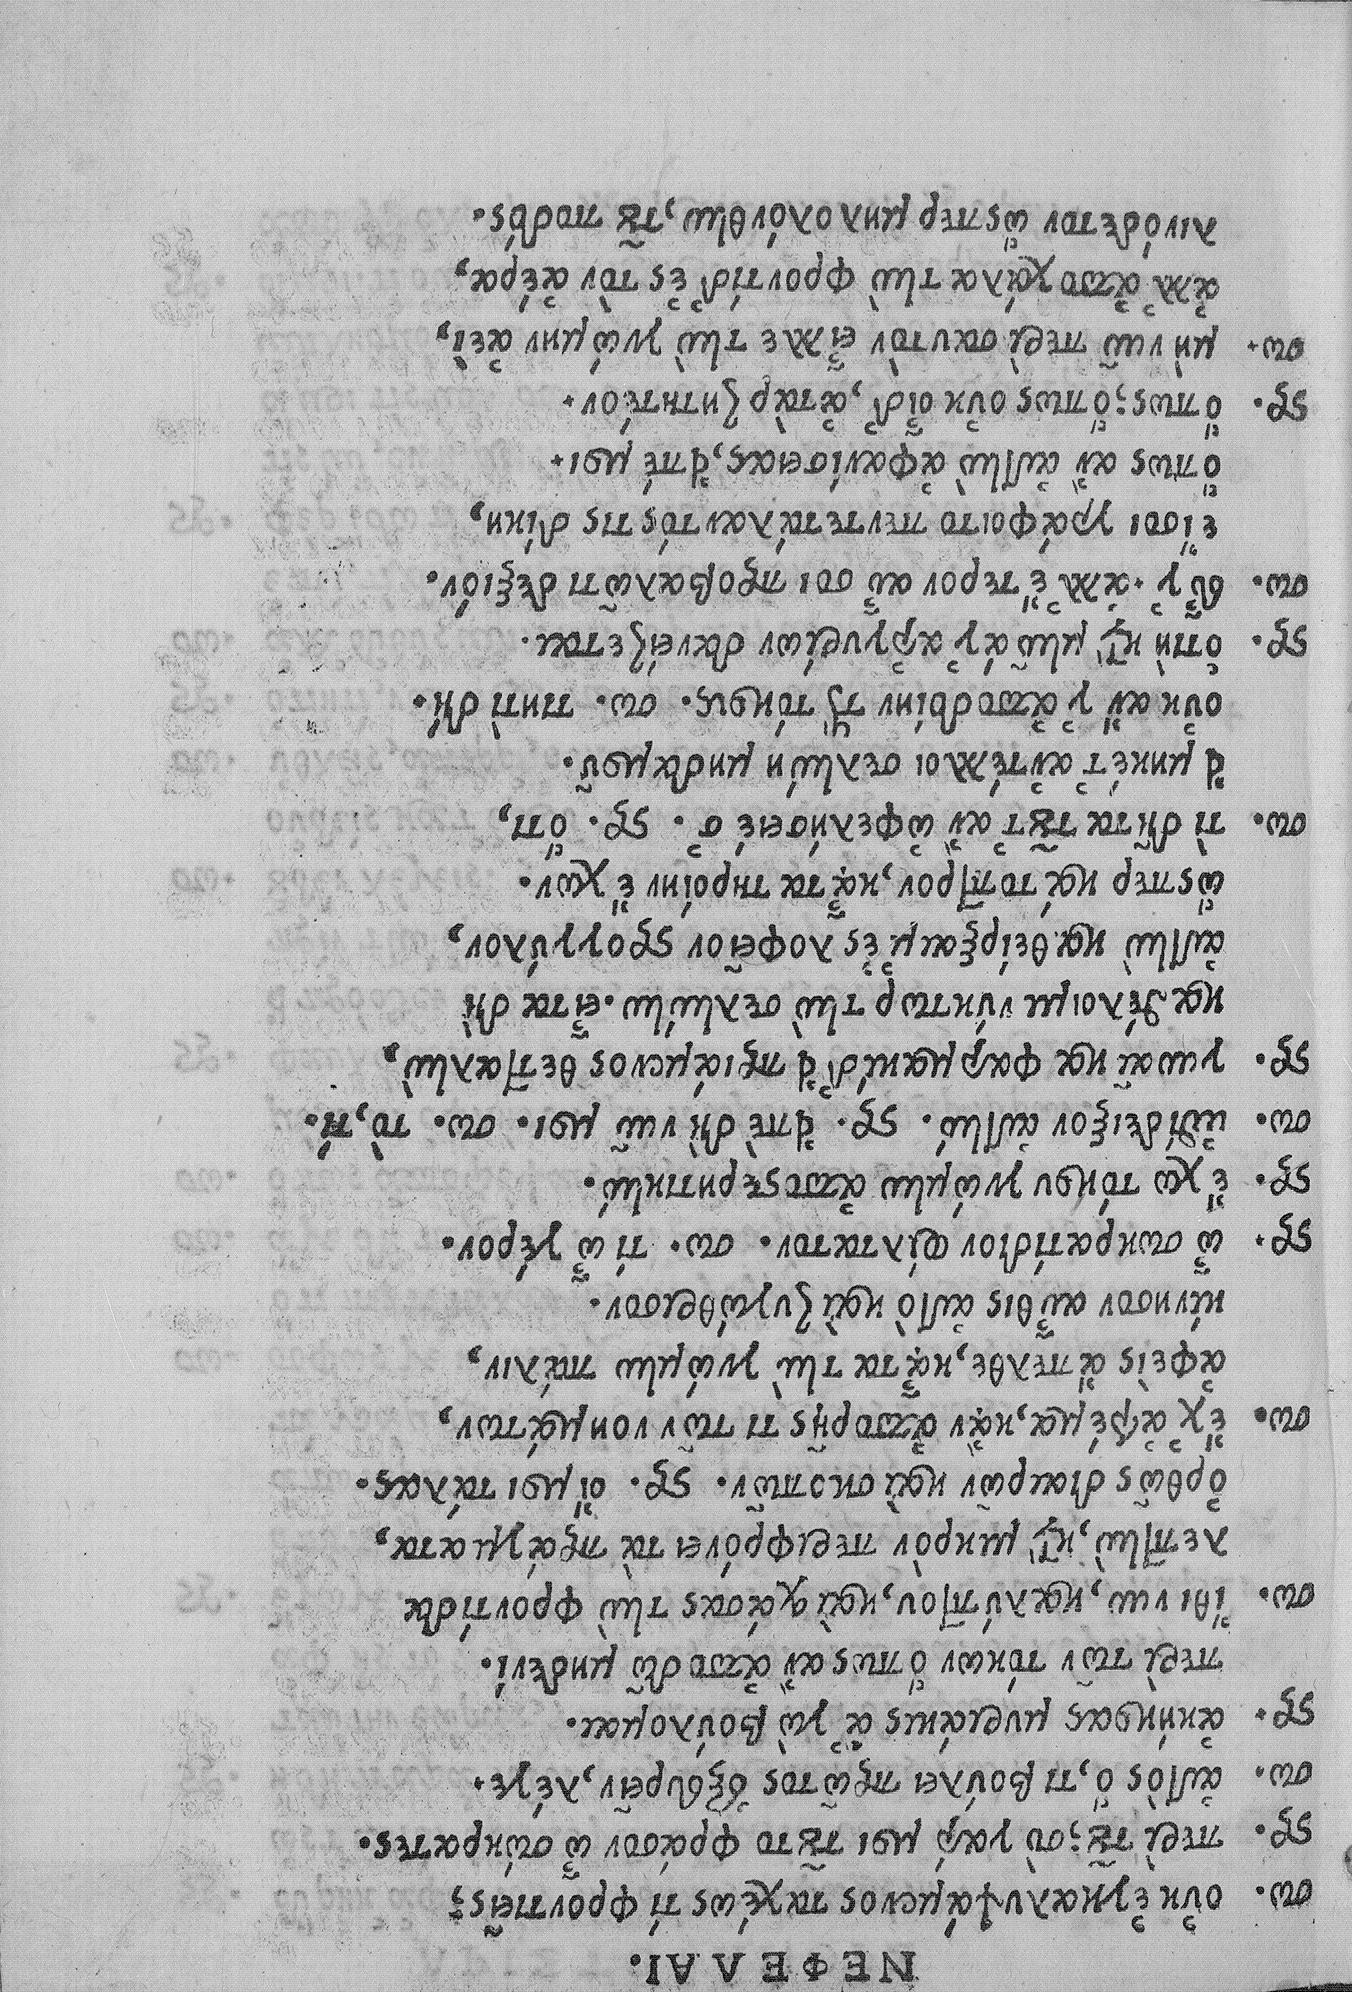 ΝΕΦΕΛΑΙ.
σω. οὐκ ἐγκαλυψάμενος ταχέως τι φροντιεῖς;
ςρ. περὶ τοῦ; σὺ γάρ μοι τοῦτο φράσον ὦ σώκρατες.
σω. αὐτὸς ὅ,τι βούλει πρῶτος ἐξευρεῖν, λέγε.
ςρ. ἀκήκοας μυριάκις ἃ 'γὼ βούλομαι.
περὶ τῶν τόκων ὅπως ἂν ἀποδῶ μηδενί.
σω. ἴθι νῦν, καλύπτου, καὶ χάσας τὴν φροντίδα
λεπτὴν, κατὰ μικρὸν περιφρόνει τὰ πράγματα,
ὀρθῶς διαιρῶν καὶ σκοπῶν. ςρ. οἴμοι τάλας.
σω. ἔχ' ἀτρέμα, κἂν ἀπορῇς τι τῶν νοημάτων,
ἀφεὶς ἄπελθε, κᾆτα τὴν γνώμην πάλιν,
κίνησον αὖθις αὐτὸ καὶ ζυγώθρισον.
ςρ. ὦ σωκρατίδιον φίλτατον. σω. τί ὦ γέρον.
ςρ. ἔχω τόκου γνώμην ἀποστερητικήν.
σω. ἐπίδειξον αὐτήν. ςρ. εἰπὲ δὴ νῦν μοι. σω. τὸ, τί.
ςρ. γυναῖκα φαρμακίδ' εἰ πριάμενος θετταλὴν,
καθέλοιμι νύκτωρ τὴν σελήνην. εἶτα δὴ
αὐτὴν καθείρξαιμ' ἐς λοφεῖον στρογγύλον,
ὥσπερ κάτοπτρον, κᾆτα τηροίην ἔχων.
σω. τί δῆτα τοῦτ' ἂν ὠφελήσειέ σ'. ςρ. ὅ,τι,
εἰ μηκέτ' ἀντέλλοι σελήνη μηδαμοῦ.
οὐκ ἂν γ' ἀποδοίην τοὺς τόκους. σω. τιὴ τί δή.
ςρ. ὁτιὴ κατὰ μῆνα γ' ἀργύριον δανείζεται.
σω. εὖ γ'. ἀλλ' ἕτερον αὖ σοι προβαλῶ τι δεξιόν.
εἴ σοι γράφοιτο πεντετάλαντός τις δίκη,
ὅπως ἂν αὐτὴν ἀφανίσειας, εἰπέ μοι.
ςρ. ὅπως; ὅπως οὐκ οἶδ', ἀτὰρ ζητητέον.
σω. μὴ νῦν περὶ σαυτὸν εἶλλε τὴν γνώμην ἀεὶ,
ἀλλ' ἀποχάλα τὴν φροντίδ' ἐς τὸν ἀέρα,
λινόδετον ὥσπερ μηλολόνθην, τοῦ ποδός.